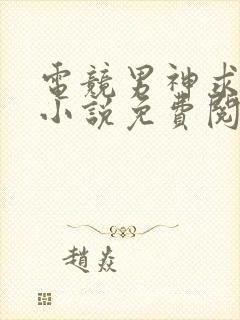 電競男神求
小說免費閱
趙焱